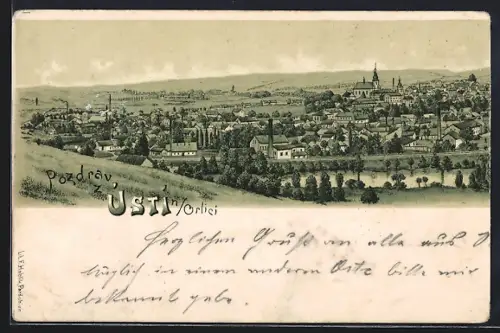 Pozdrav
z
ÚSTÍ n/Orlicí
Herzlichen Gruß an alle aus
in einem anderen Orte bitte mir
bekannt gebe.